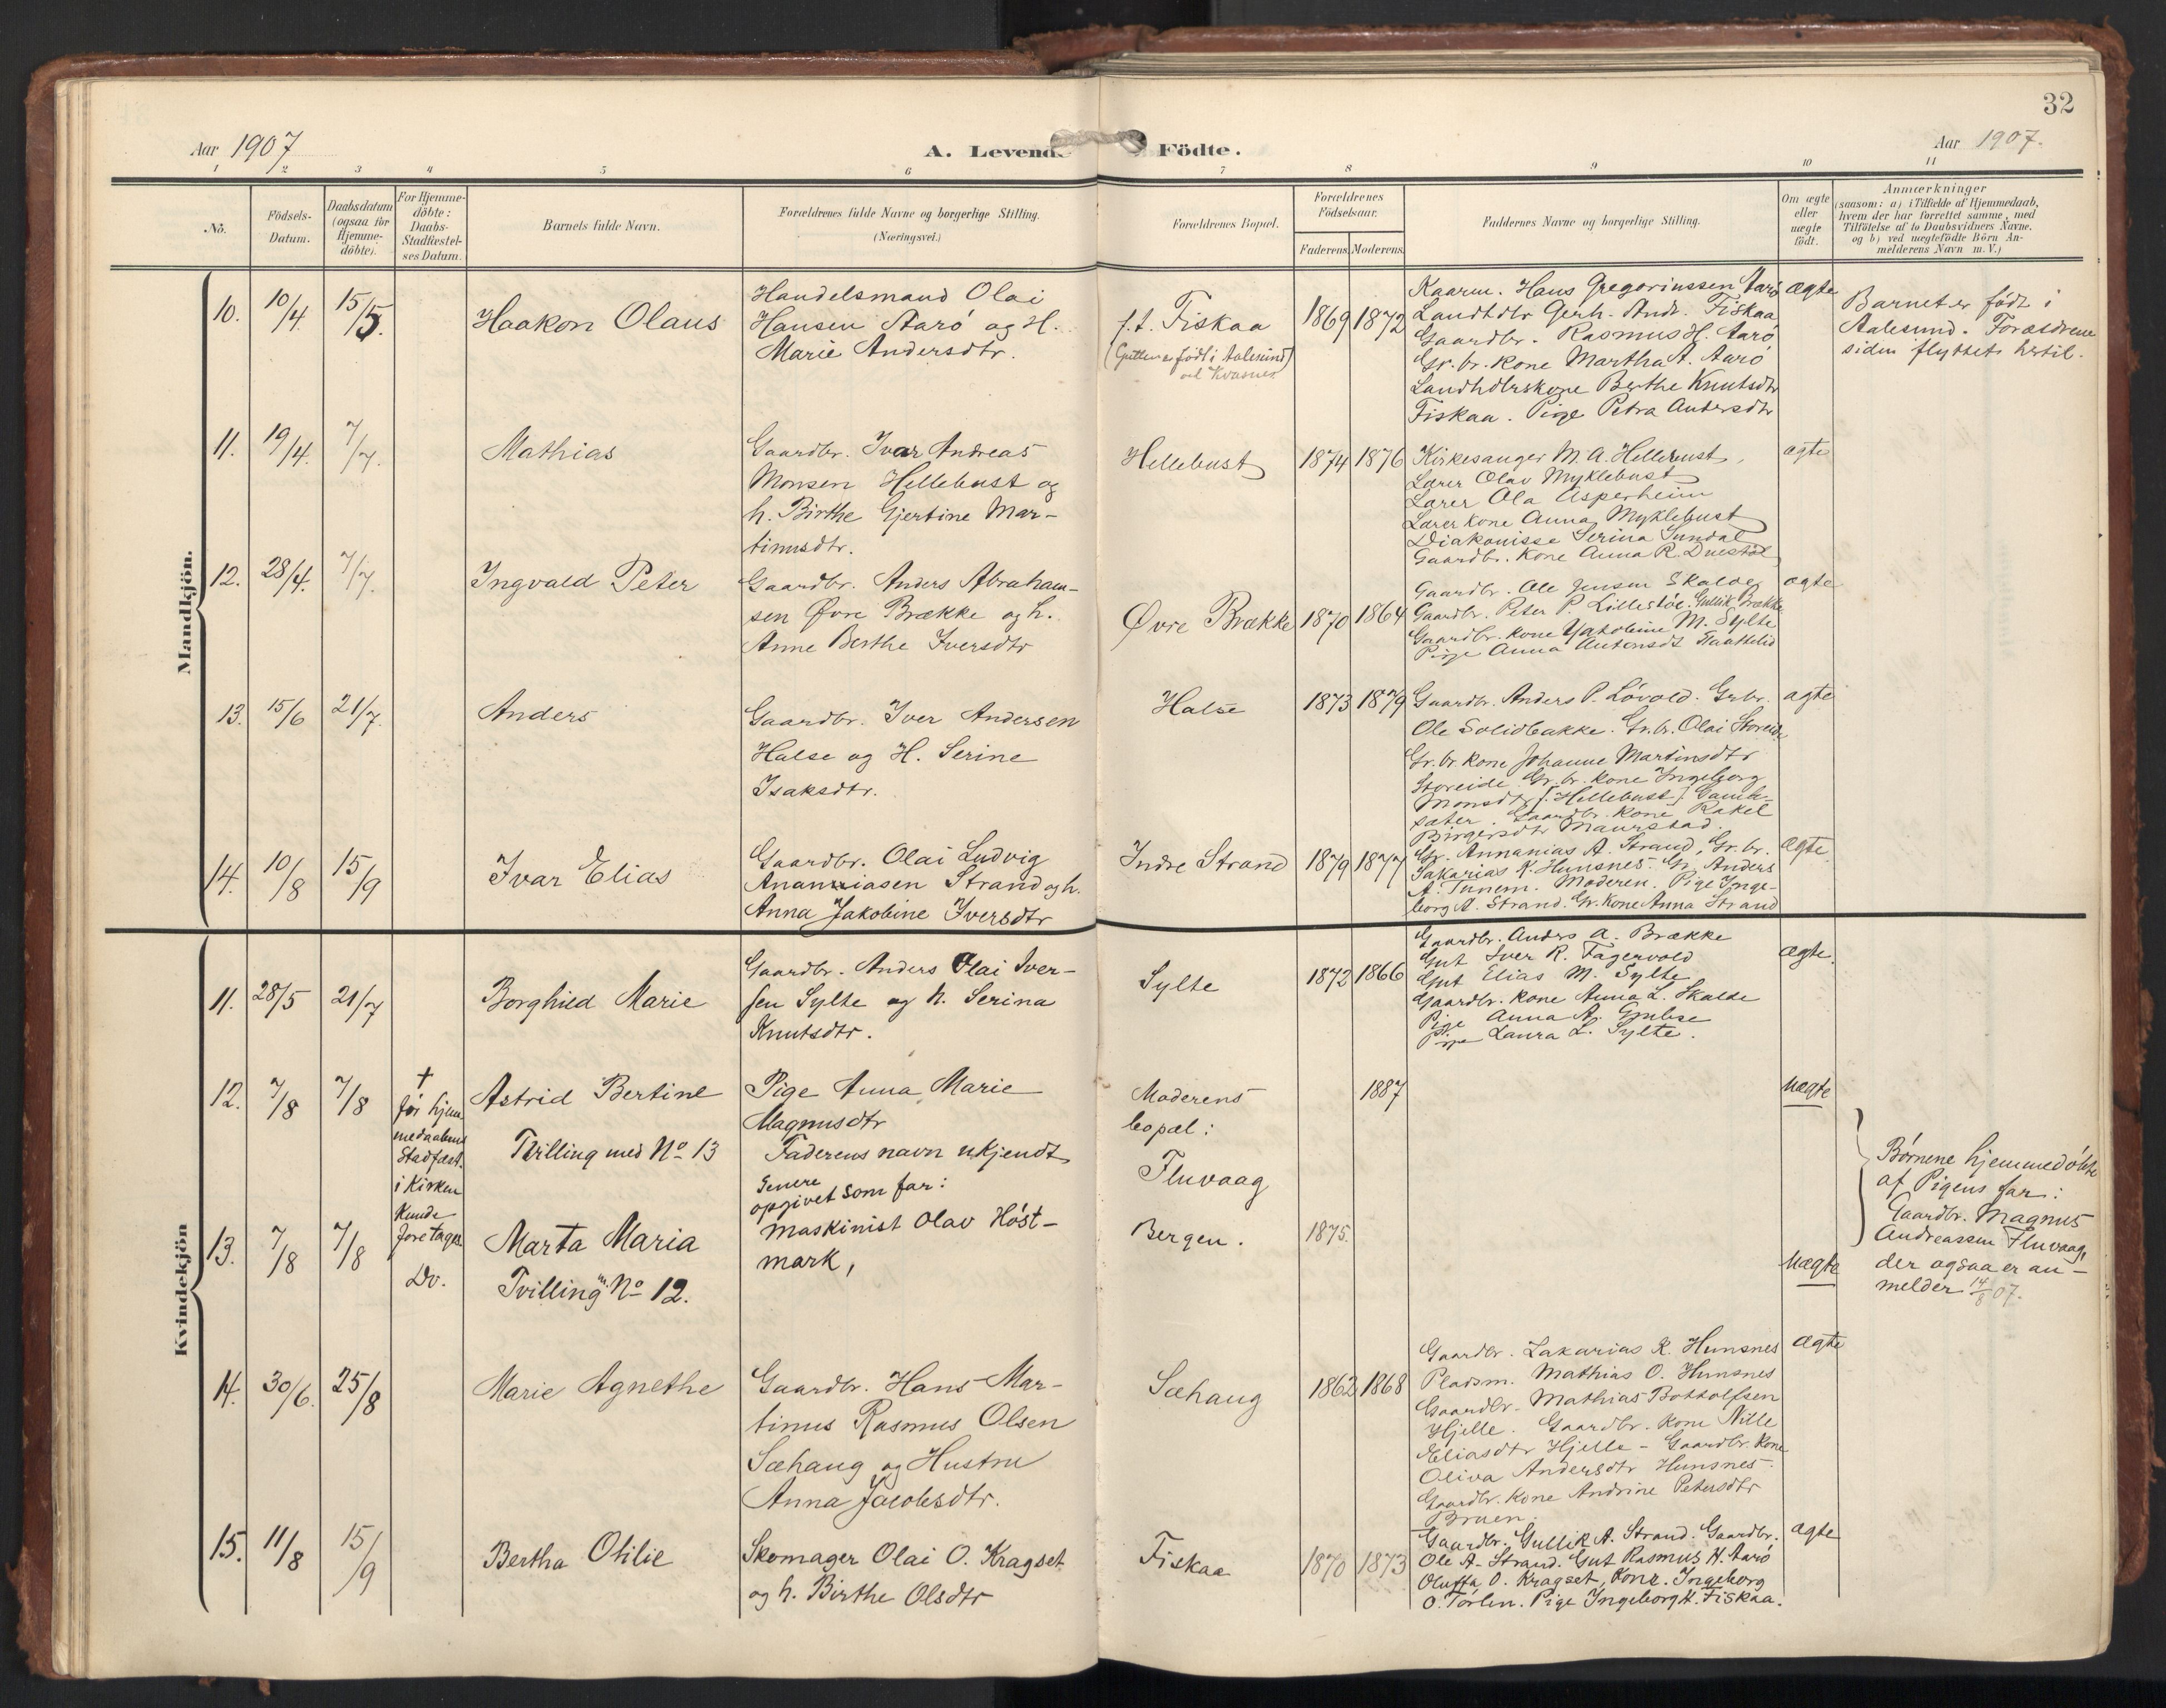 32
Aar 1907
A. Levende Födte.
Aar 1907.
1 2 3 4 5 6 7 8 9 10 11
No.
Födsels-
Datum.
Daabsdatum
(ogsaa for
Hjemme-
döbte).
For Hjemme-
döbte:
Daabs-
Stadfæstel-
ses Datum.
Barnets fulde Navn.
Forældrenes fulde Navne og borgerlige Stilling.
(Næringsvei.)
Forældrenes Bopæl.
Forældrenes
Födselsaar.
Faderens. Moderens.
Faddernes Navne og borgerlige Stilling.
Om ægte
eller
uægte
födt.
Anmærkninger
(saasom: a) i Tilfælde af Hjemmedaab,
hvem der har forrettet samme, med
Tilföielse af to Daabsvidners Navne,
og b) ved uægtefödte Börn An-
melderens Navn m. V.)
Mandkjön.
10. 10/4 15/5. Haakon Olaus
Handelsmand Olai
Hansen Aarö og H.
Marie Andersdtr.
f.t. Fiskaa
(Gutten er født i Aalesund)
1869 1872
Kaarm. Hans Gregoriussen Aarö
Landhdlr Gerh. Andr. Fiskaa
Gaardbr. Rasmus H. Aarö
Gr.br. Kone Martha A. Aarö
Landhdlrskone Berthe Knutsdtr
Fiskaa. Pige Petra Andersdtr
ægte
Barnet er født i
Aalesund. Forældrene
siden flyttet hertil.
11. 19/4. 7/7. Mathias
Gaardbr. Ivar Andreas
Monsen Hellebust og
h. Birthe Gjertine Mar-
tinusdtr.
Hellebust
1874 1876
Kirkesanger M. A. Hellebust,
Lærer Olav Myklebust
Lærer Ola Asperheim
Lærer kone Anna Myklebust
Diakonisse Serina Sundal
Gaardbr. Kone Anna R. Duestöl
ægte
12. 28/4. 7/7. Ingvald Peter
Gaardbr. Anders Abraham-
sen Øvre Brække og h.
Anne Berthe Iversdtr
Øvre Brække
1870 1864
Gaardbr. Ole Jensen Skalde
Gaardbr. Peter P. Lillestöl. Gullik Brække
Gaardbr. Kone Jakobine M. Sylte
Pige Anna Antonsdt
ægte
13. 15/6 21/7. Anders
Gaardbr. Iver Andersen
Halse og H. Serine
Isaksdtr.
Halse
1873 1879
Gaardbr. Anders P. Lövold. Grbr.
Ole Solidbakke. Gr.br. Olai Storeide
Gr.br. Kone Johanne Martinsdtr
Storeide. Gr.br. Kone Ingeborg
Monsdtr [Hellebust] Gamle-
sæter. Gaardbr. Kone Rakel
Birgersdtr Maurstad.
ægte
14. 10/8 15/9 Ivar Elias
Gaardbr. Olai Ludvig
Ananiasen Strand og h.
Anna Jakobine Iversdtr
Indre Strand
1879 1877
Gr. Annanias A. Strand, Gr.br.
Sakarias K. Hunsnes. Gr. Anders
A. Tunem. Moderen. Pige Inge-
borg A. Strand. Gr. Kone Anna Strand
ægte
Kvindekjön
11. 28/5 21/7 Borghild Marie
Gaardbr. Anders Olai Iver-
sen Sylte og h. Serina
Knutsdtr.
Sylte
1872 1866
Gaardbr. Anders A. Brække
Gut Iver R. Fagervold
Gut Elias M. Sylte
Gaardbr. Kone Anna L. Skalde
Pige Anna A.
Pige Laura L. Sylte.
ægte.
12. 7/8 7/8
†
før hjem
medaabens
Stadfæst.
i Kirken
kunde
foretages.
Astrid Bertine
Tvilling med No 13
Pige Anna Marie
Magnusdtr
Faderens navn ukjendt
Senere
opgivet som far:
maskinist Olav Höst-
mark,
Moderens
bopæl:
Fluvaag
1887
uægte
Børnene hjemmedöbte
af Pigens far:
Gaardbr. Magnus
Andreassen Fluvaag,
der ogsaa er an-
melder 14/8 07.
13. 7/8 7/8 Do.
Marta Maria
Tvilling m. No 12.
Bergen.
1875.
uægte
14. 30/6. 25/8 Marie Agnethe
Gaardbr. Hans Mar-
tinus Rasmus Olsen
Sæhaug og Hustru
Anna Jacobsdtr.
Sæhaug
1862 1868
Gaardbr. Zakarias K. Hunsnes
Pladsm. Mathias O. Hunsnes
Gaardbr. Mathias Bottolfsen
Hjelle. Gaardbr. Kone Nille
Eliasdtr Hjelle - Gaardbr. Kone
Oliva Andersdtr Hunsnes.
Gaardbr. Kone Andrine Petersdtr
Bruen.
ægte
15. 11/8 15/9 Bertha Otilie
Skomager Olai O. Kragset
og h. Birthe Olsdtr
Fiskaa
1870 1873
Gaardbr. Gullik A. Strand. Gaardbr.
Ole A. Strand. Gut Rasmus H. Aarö
Oluffa O. Kragset, Kone. Ingeborg
O. Törlen. Pige Ingeborg H. Fiskaa.
ægte